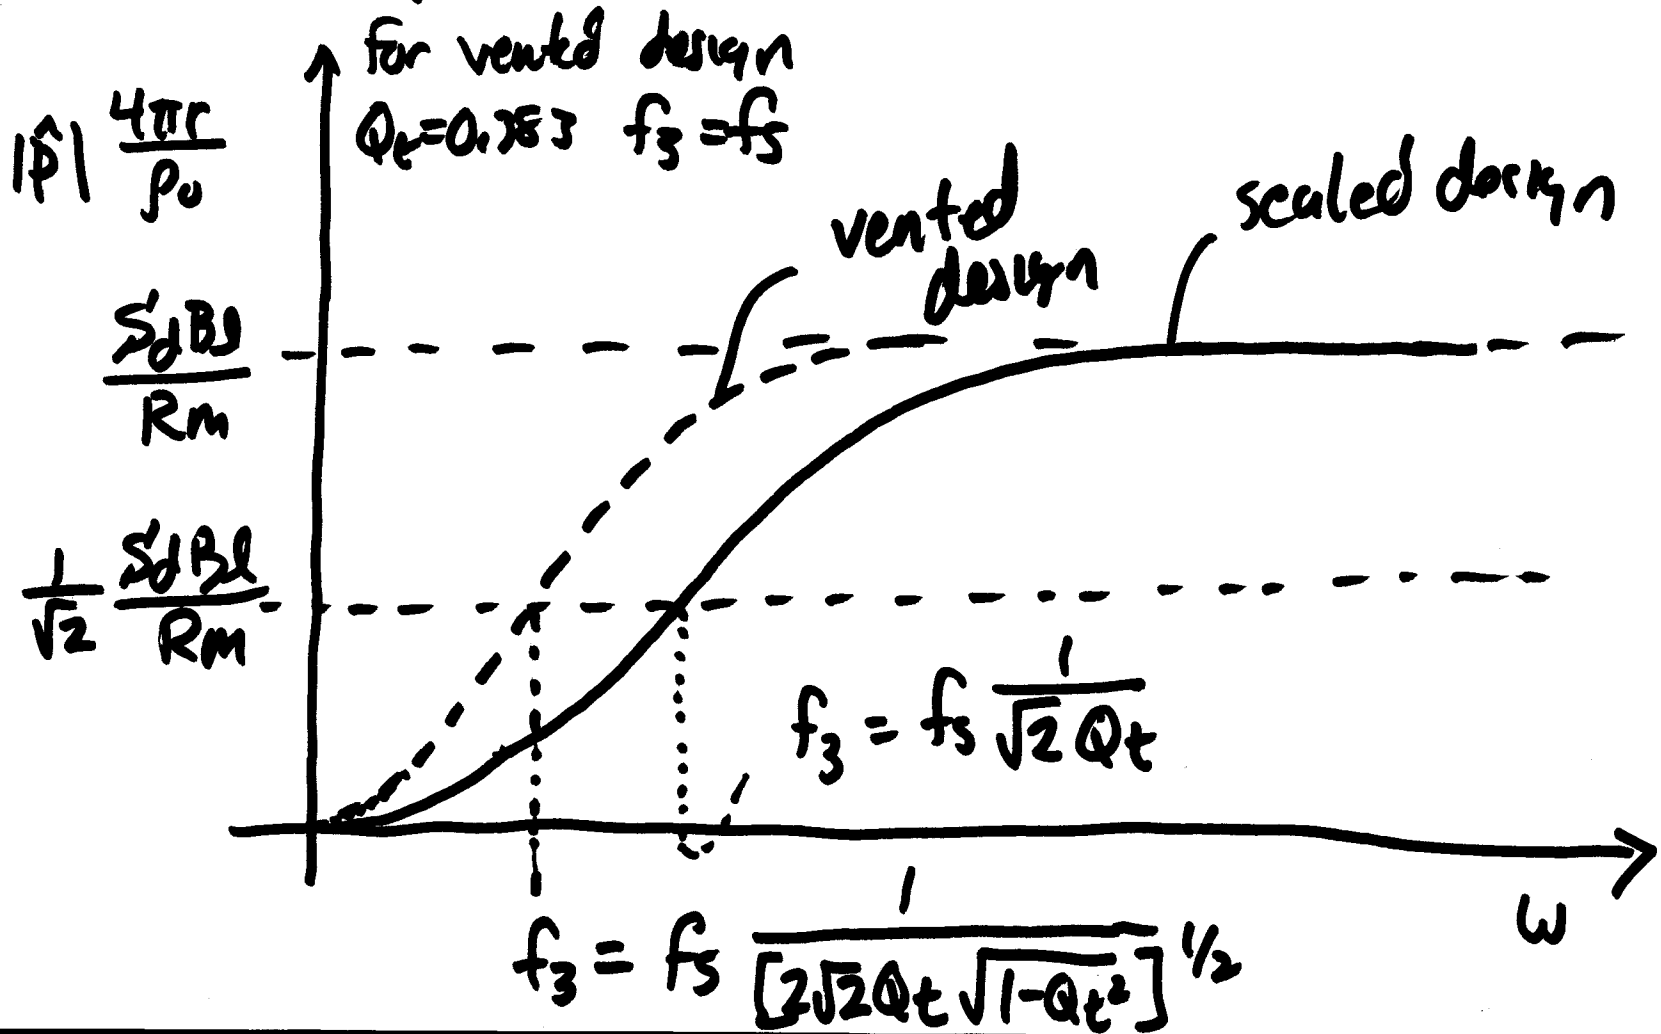 for vented design
Qt=0.383 f3=fs
|p̂| 4πr/ρ0
vented design
sealed design
SdBl/Rm
1/√2 SdBl/Rm
f3 = fs 1/(√2 Qt)
ω
f3 = fs 1/[2√2Qt √(1-Qt²)]^1/2